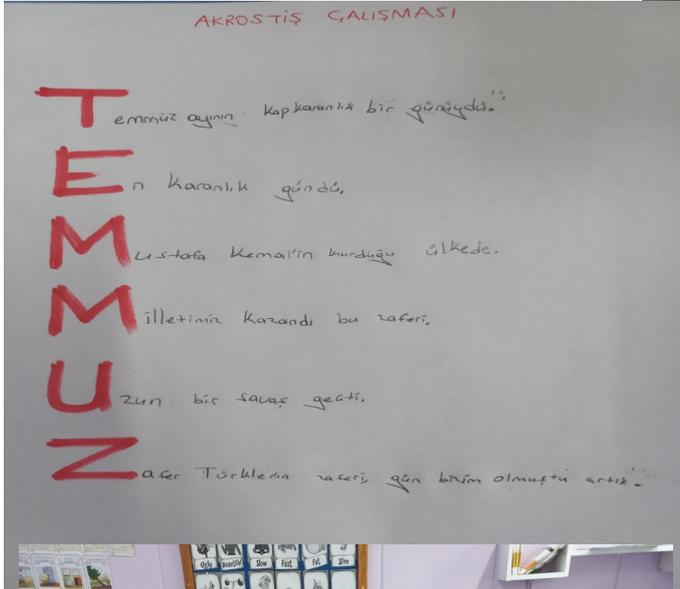 AKROSTİŞ ÇALIŞMASI
Temmuz ayının kapkaranlık bir günüydü.
En karanlık gündü.
Mustafa Kemal'in kurduğu ülkede.
Milletimiz kazandı bu zaferi.
Uzun bir savaş geçti.
Zafer Türklerin zaferi, gün bizim olmuştu artık.
Ugly Beautiful Slow Fast Fat Slim